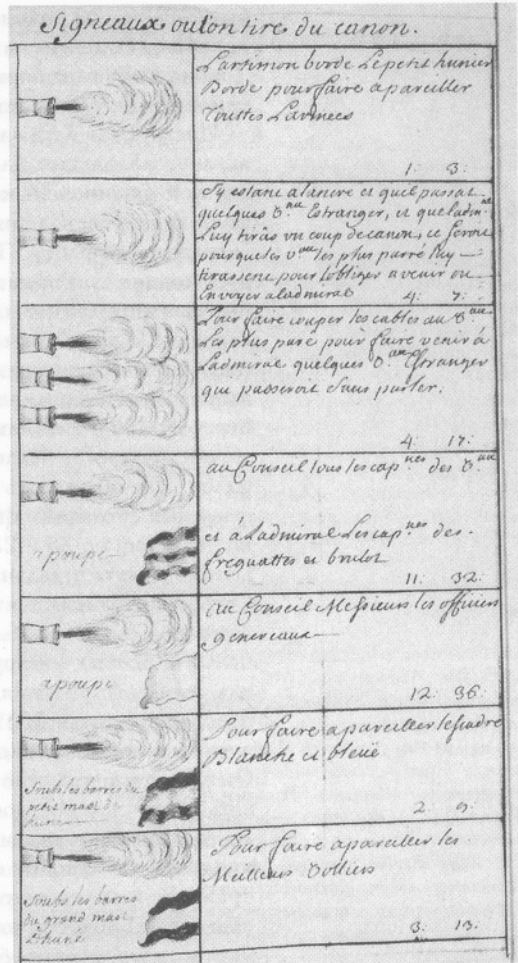 Signeaux ou lon tire du canon.
Lartimon borde Le petit hunier
Borde pour faire apareiller
Touttes Larmees
1: 3:
Sy estant a lancre et quil passat
quelques v.au Estranger, et que ladm.al
Luy tirâs un coup de canon, ce seroit
pour que les v.au les plus parré luy
tirassent pour lobliger a venir ou
Envoyer a ladmiral 4: 7:
Pour faire couper les cables au v.au
Les plus pare pour faire venir à
Ladmiral quelques v.au Estranger
qui passeroit sans parler.
4: 17:
au Conseil tous les cap.nes des v.au
apoupe
et á Ladmiral Les cap.nes des
freguattes et brulot
11: 32:
au Conseil Messieurs les officiers
genereaux
apoupe
12: 36:
Pour faire apareiller lescadre
Blanche et bleüe
Soubs les barres du
petit mast de
hune
2 9:
Pour faire apareiller les
Meilleurs Volliers
Soubs les barres
du grand mast
Dhune
3: 13: